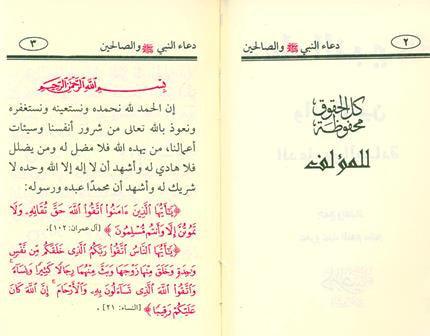 ٢
دعاء النبي ﷺ والصالحين
كل الحقوق
محفوظة
للمؤلف
دعاء النبي ﷺ والصالحين
٣
بسم الله الرحمن الرحيم
إن الحمد لله نحمده ونستعينه ونستغفره
ونعوذ بالله تعالى من شرور أنفسنا وسيئات
أعمالنا، من يهده الله فلا مضل له ومن يضلل
فلا هادي له وأشهد أن لا إله إلا الله وحده لا
شريك له وأشهد أن محمدًا عبده ورسوله:
﴿يَٰٓأَيُّهَا ٱلَّذِينَ ءَامَنُوا۟ ٱتَّقُوا۟ ٱللَّهَ حَقَّ تُقَاتِهِۦ وَلَا
تَمُوتُنَّ إِلَّا وَأَنتُم مُّسْلِمُونَ﴾ [آل عمران: ١٠٢].
﴿يَٰٓأَيُّهَا ٱلنَّاسُ ٱتَّقُوا۟ رَبَّكُمُ ٱلَّذِى خَلَقَكُم مِّن نَّفْسٍ
وَٰحِدَةٍ وَخَلَقَ مِنْهَا زَوْجَهَا وَبَثَّ مِنْهُمَا رِجَالًا كَثِيرًا وَنِسَآءً ۚ
وَٱتَّقُوا۟ ٱللَّهَ ٱلَّذِى تَسَآءَلُونَ بِهِۦ وَٱلْأَرْحَامَ ۚ إِنَّ ٱللَّهَ كَانَ
عَلَيْكُمْ رَقِيبًا﴾ [النساء: ٢١].